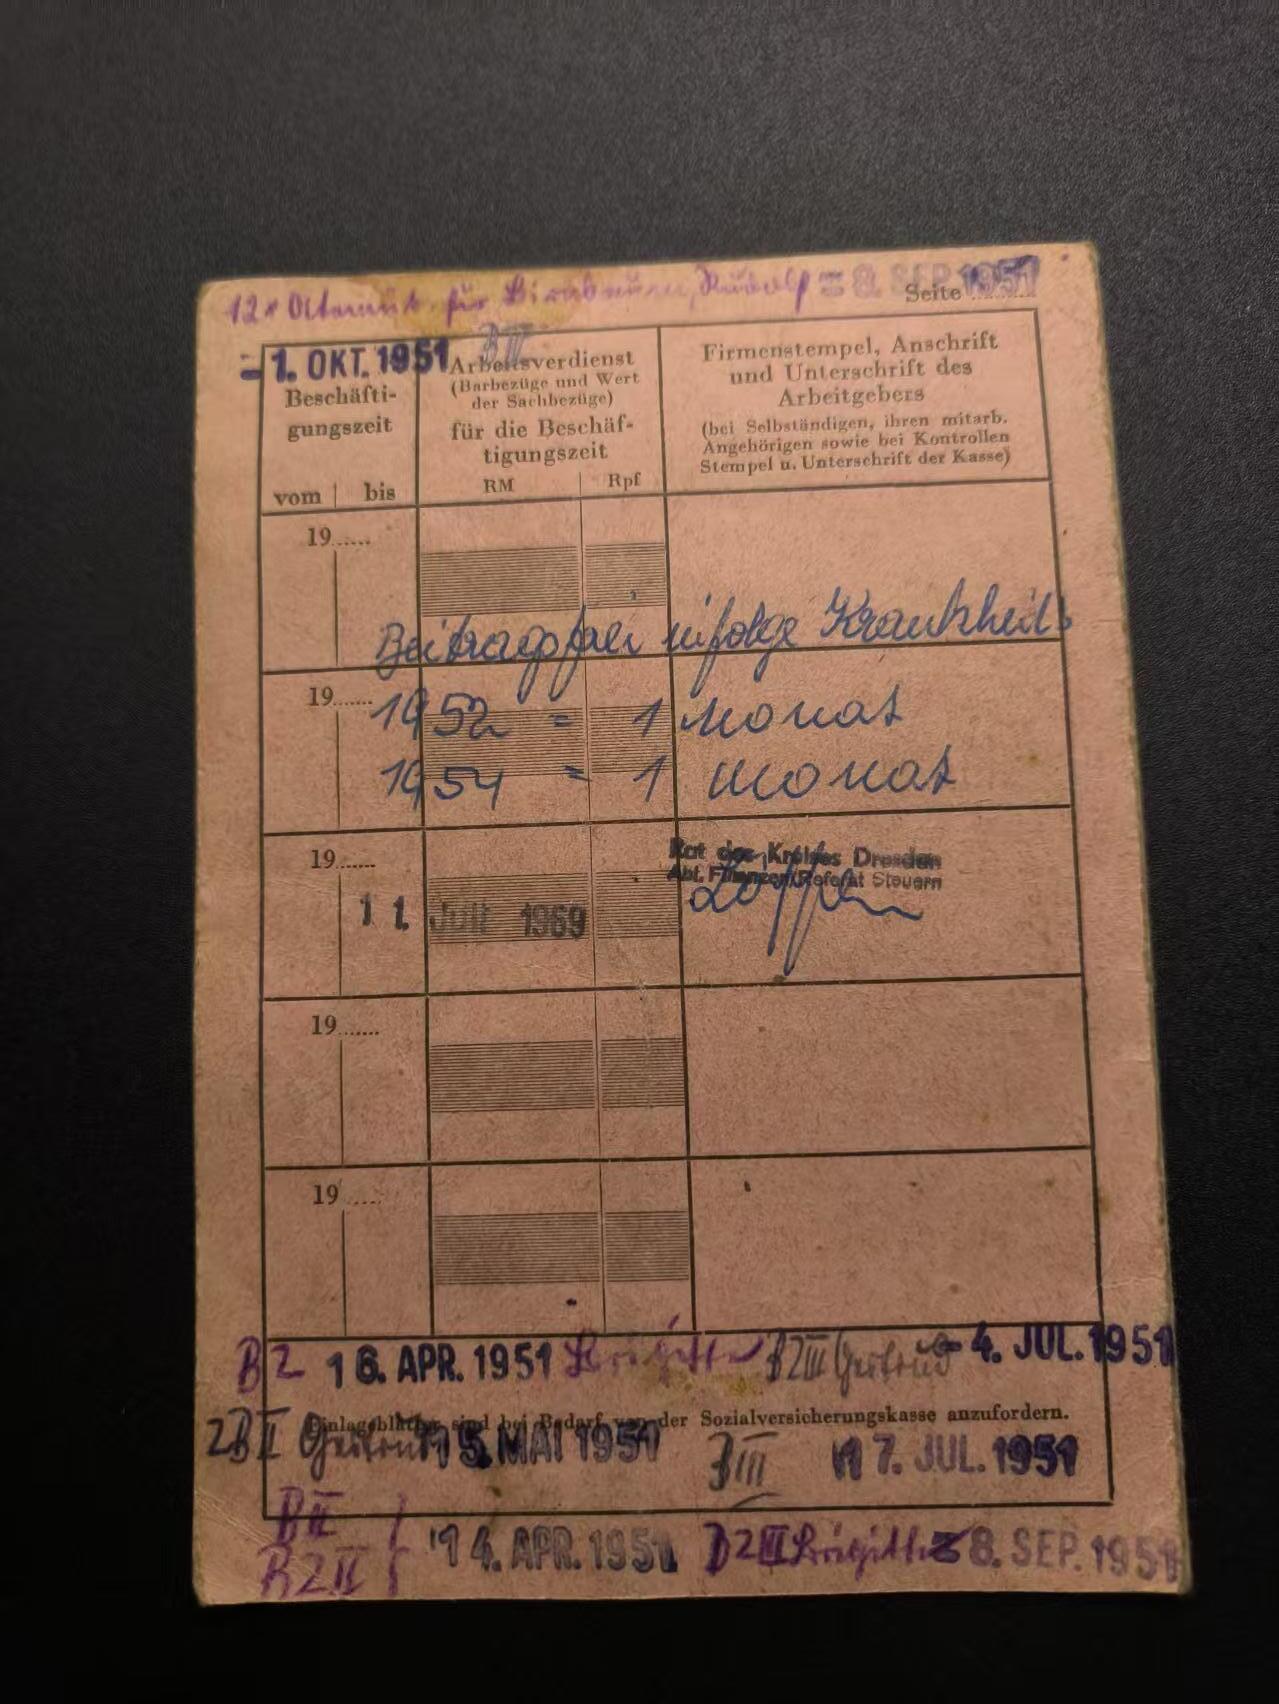 12 x für Rudolf = 8. SEP. 1951
Seite
- 1. OKT. 1951 B II
Beschäfti-
gungszeit
vom | bis
Arbeitsverdienst
(Barbezüge und Wert
der Sachbezüge)
für die Beschäf-
tigungszeit
RM Rpf
Firmenstempel, Anschrift
und Unterschrift des
Arbeitgebers
(bei Selbständigen, ihren mitarb.
Angehörigen sowie bei Kontrollen
Stempel u. Unterschrift der Kasse)
19......
Beitragsfrei infolge Krankheit
19.......
1952 = 1 Monat
1954 = 1 Monat
19......
Rat des Kreises Dresden
Abt. Finanzen/Referat Steuern
11. Juli 1969
19.......
19......
B2 16. APR. 1951 Brigitte B2III Gertrud - 4. JUL. 1951
Einlageblätter sind bei Bedarf von der Sozialversicherungskasse anzufordern.
2B II Gertrud 15. MAI 1951 BIII 17. JUL. 1951
B II
B2II 14. APR. 1951 B2III Brigitte = 8. SEP. 1951